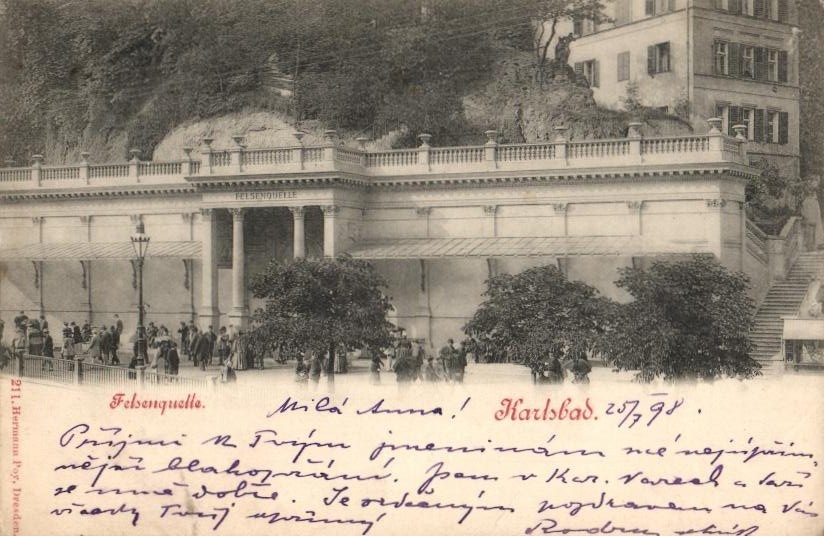 FELSENQUELLE
Felsenquelle.
Milá Anno!
Karlsbad. 25/7 98.
Přijmi k Tvým jmeninám mé nejupřím-
nější blahopřání. Jsem v Kar. Varech a daří
se mně dobře. Se srdečným pozdravem na Vás
všecky Tvůj upřímný
211. Hermann Poy, Dresden.